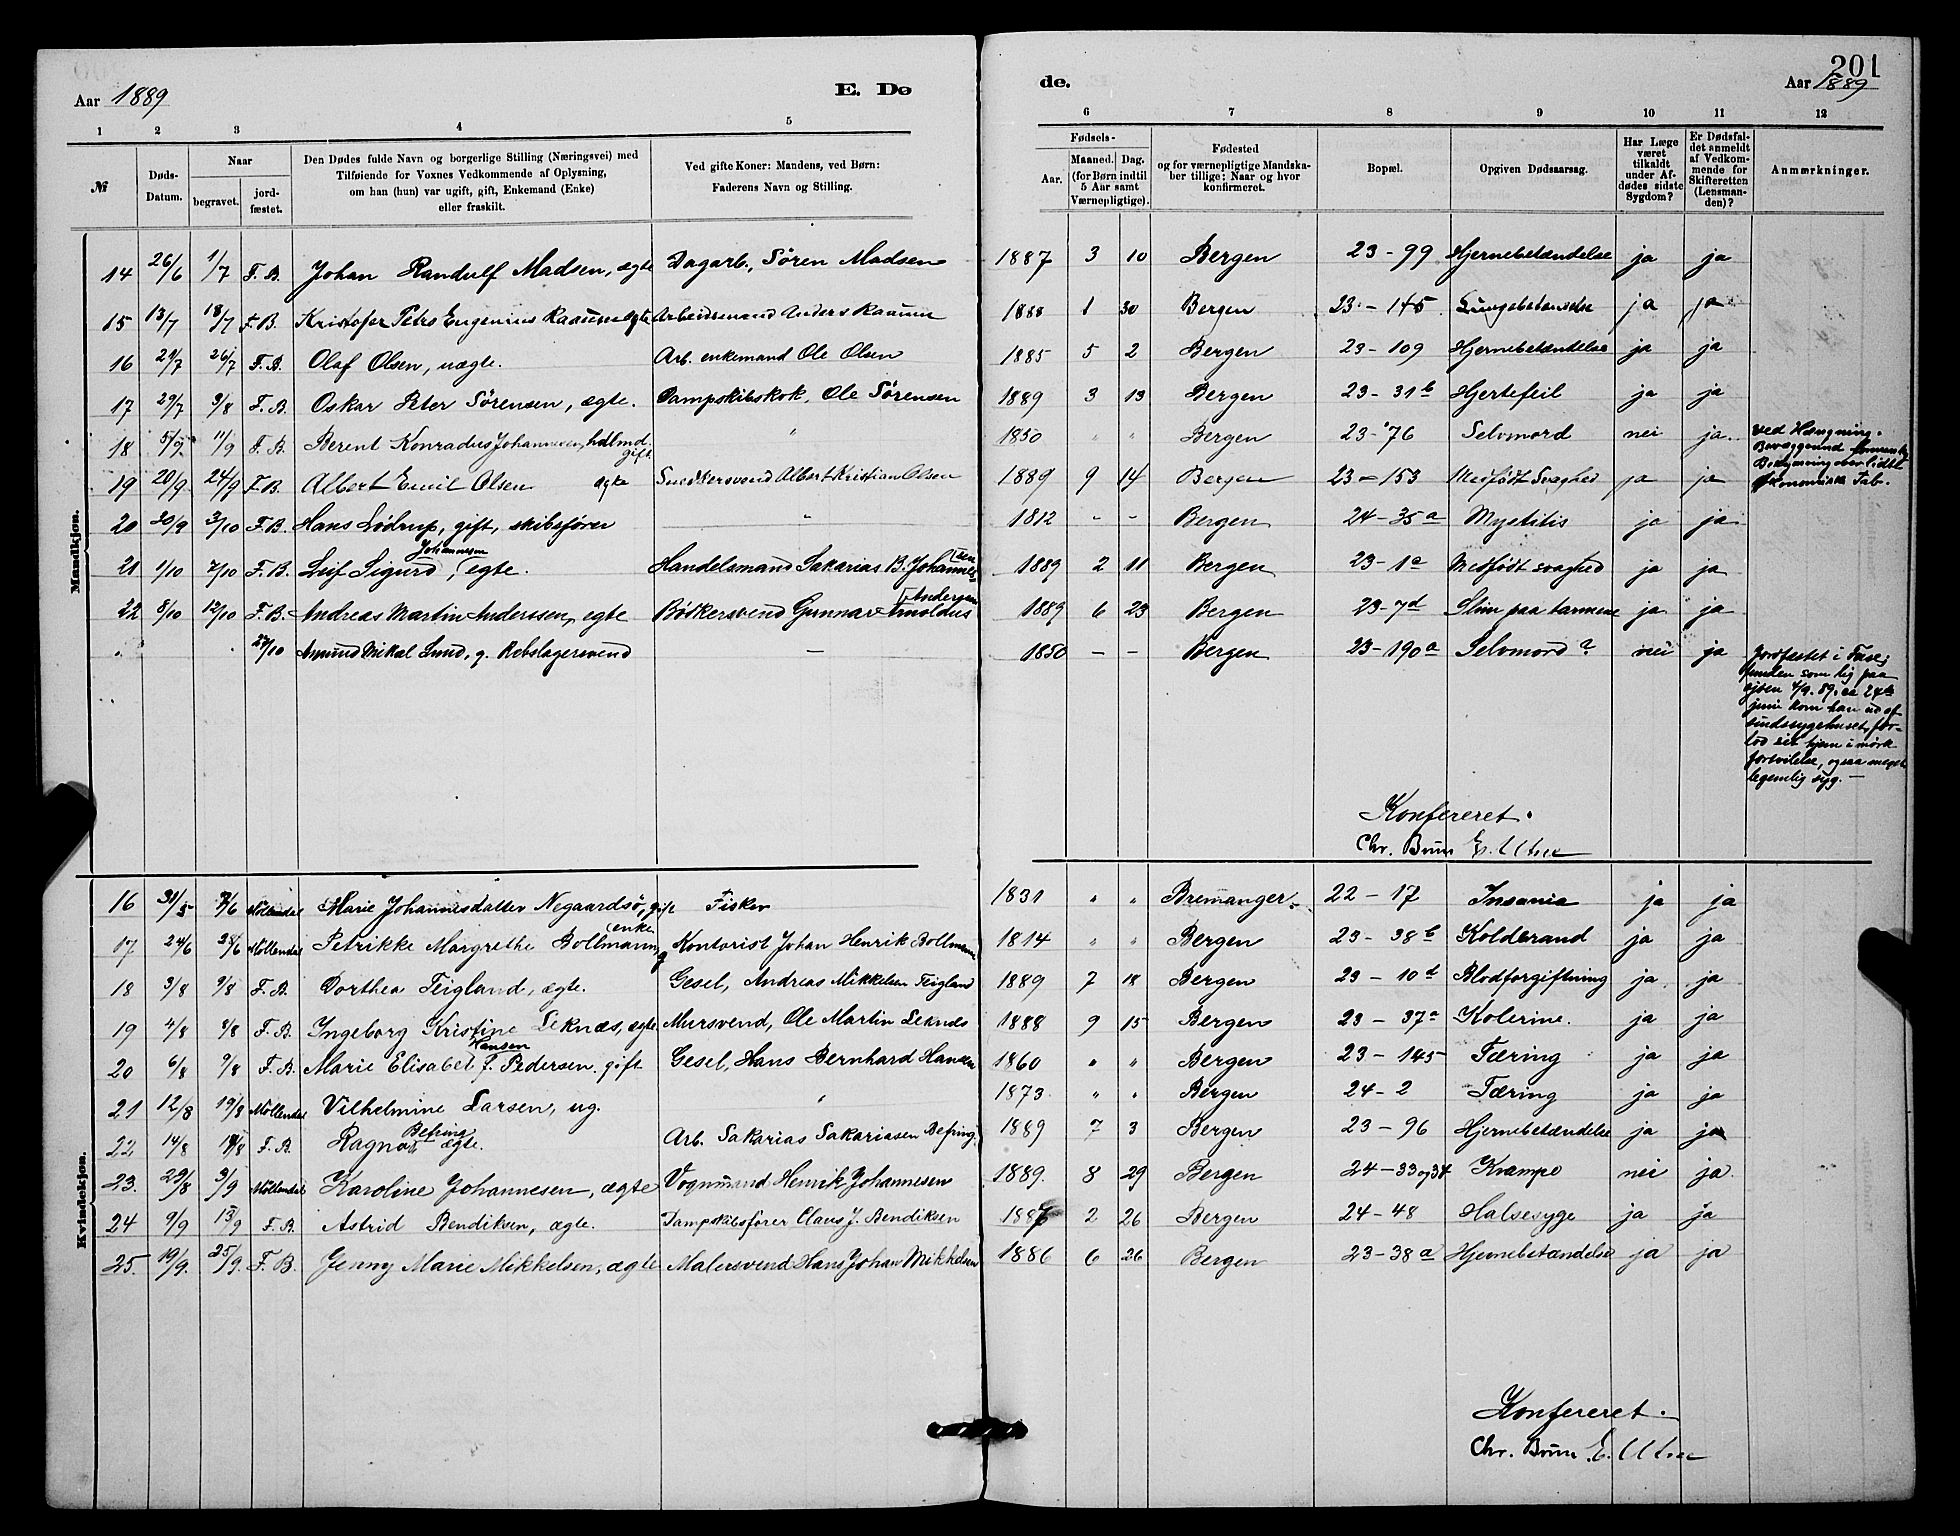 201
Aar 1889 E. Dø de. Aar 1889
1 2 3 4 5 6 7 8 9 10 11 12
№
Døds-Datum.
Naar
begravet.
jord-fæstet.
Den Dødes fulde Navn og borgerlige Stilling (Næringsvei) med
Tilføiende for Voxnes Vedkommende af Oplysning,
om han (hun) var ugift, gift, Enkemand (Enke)
eller fraskilt.
Ved gifte Koner: Mandens, ved Børn:
Faderens Navn og Stilling.
Fødsels-
Aar.
Maaned. Dag.
(for Børn indtil
5 Aar samt
Værnepligtige).
Fødested
og for værnepligtige Mandska-
ber tillige: Naar og hvor
konfirmeret.
Bopæl.
Opgiven Dødsaarsag.
Har Læge
været
tilkaldt
under Af-
dødes sidste
Sygdom?
Er Dødsfal-
det anmeldt
af Vedkom-
mende for
Skifteretten
(Lensman-
den)?
Anmærkninger.
Mandkjøn.
14 26/6 1/7 F.B. Johan Randulf Madsen, ægte Dagarb., Sören Madsen 1887 3 10 Bergen 23-99 Hjernebetændelse ja ja
15 13/7 18/7 F.B. Kristofer Petrs Eugenius Raaum ægte Arbeidsmand Anders Raaum 1888 1 30 Bergen 23-145 Lungebetændelse ja ja
16 26/7 F.B. Olaf Olsen, uægte. Arb. enkemand Ole Olsen 1885 5 2 Bergen 23-109 Hjernebetændelse ja ja
17 29/7 3/8 F.B. Oskar Peter Sörensen, ægte. Dampskibskok, Ole Sörensen 1889 3 13 Bergen 23-31b Hjertefeil ja ja
18 5/9. 11/9 F.B. Berent Konradus Johannesen, gift " 1850 " " Bergen 23-76 Selvmord nei ja. ved Hængning.
Bevæggrund
økonomisk Tab.
19 20/9 24/9 F.B. Albert Emil Olsen ægte Snedkersvend Albert Kristian Olsen 1889 9 14 Bergen 23-153 Medfödt Svaghed ja ja
20 30/9 3/10 F.B. Hans Lödrup, gift, skibsförer " 1812 - - Bergen 24-35a Mystitis ja ja
21 1/10 7/10 F.B. Leif Sigurd Johannesen, ægte. Handelsmand Sakarias B. Johannessen 1889 2 11 Bergen 23-1a Medfödt svaghed ja ja
22 8/10 12/10 F.B. Andreas Martin Anderssen, ægte Bödkersvend Gunnar Arnoldus Andersen 1889 6 23 Bergen 23-7d Slim paa tarmene ja ja
27/10 Amund Mikal Lund, g. Rebslagersvend - 1850 - - Bergen 23-190a Selvmord? nei ja Jordfæstet i
funden som lig paa
4/9. 89. 24de
juni kom han ud af
sindssygehuset, for-
lod sit hjem i mörk
fortvilelse, ogsaa meget
legemlig syg. -
Konfereret.
Chr. Brun E. Utne
Kvindekjøn.
16 31/5 7/6 Möllendal Marie Johannesdatter Negaardsö, gift Fisker 1831 " " Bremanger. 22-17 Insania ja ja
17 24/6 28/6 Möllendal Petrikke Margrethe Bollmann, enke Kontorist Johan Henrik Bollmann 1814 " " Bergen 23-38b Koldbrand ja ja
18 3/8 9/8 F.B. Dorthea Teigland, ægte. Gesel, Andreas Mikkelsen Teigland 1889 7 18 Bergen 23-10d Blodforgiftning ja ja
19 4/8 8/8 F.B. Ingeborg Kristine Leknæs, ægte Mursvend, Ole Martin Leknæs 1888 9 15 Bergen 23-37a Kolerine. ja ja
20 6/8 9/8 F.B. Marie Elisabet Hansen f. Pedersen. gift Gesel, Hans Bernhard Hansen 1860 " " Bergen 23-145 Tæring ja ja
21 12/8 19/8 Möllendal Vilhelmine Larsen, ug. " 1873 " " Bergen 24-2 Tæring ja ja
22 14/8 18/8 F.B. Ragna Befring ægte. Arb. Sakarias Sakariasen Befring. 1889 7 3 Bergen 23-96 Hjernebetændelse ja ja
23. 29/8 3/9 Möllendal Karoline Johannesen, ægte Vognmand Henrik Johannesen 1889. 8 29 Bergen 24-33 og 34 Krampe nei ja
24 9/9 13/9 F.B. Astrid Bendiksen, ægte. Dampskibsförer Claus J. Bendiksen 2 26 Bergen 24-48 Halsesyge ja ja
25. 19/9. 25/9. F.B. Jenny Marie Mikkelsen, ægte Malersvend Hans Johan Mikkelsen 1886 6 26 Bergen 23-38a Hjernebetændelse ja ja
Konfereret.
Chr. Brun E. Utne